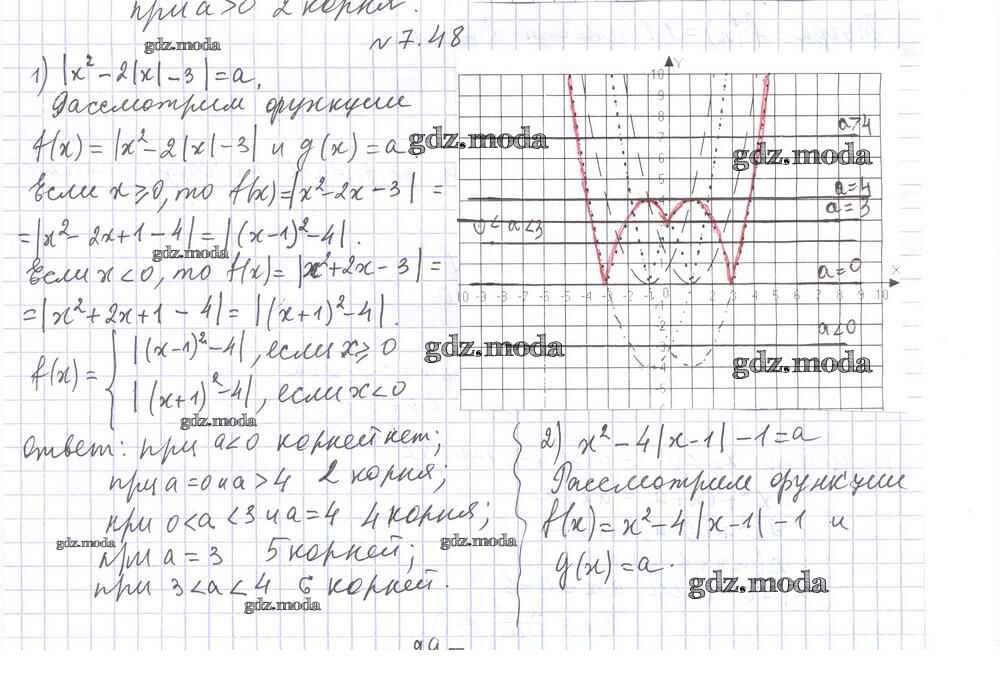 при a>0 2 корня.
gdz.moda
№7.48
1) |x² - 2|x| - 3| = a,
Рассмотрим функции
f(x) = |x² - 2|x| - 3| и g(x) = a.
gdz.moda
Если x ⩾ 0, то f(x) = |x² - 2x - 3| =
= |x² - 2x + 1 - 4| = |(x-1)² - 4|.
gdz.moda
Если x < 0, то f(x) = |x² + 2x - 3| =
= |x² + 2x + 1 - 4| = |(x+1)² - 4|.
f(x) = { |(x-1)² - 4|, если x ⩾ 0
|(x+1)² - 4|, если x < 0
gdz.moda
gdz.moda
Y
10
a>4
gdz.moda
a=4
a=3
0<a<3
a=0
X
-10 -9 -8 -7 -6 -5 -4 -3 -2 -1 0 1 2 3 4 5 6 7 8 9 10
a<0
gdz.moda
Ответ: при a<0 корней нет;
при a=0 и a>4 2 корня;
при 0<a<3 и a=4 4 корня;
gdz.moda
gdz.moda
при a=3 5 корней;
при 3<a<4 6 корней.
gdz.moda
2) x² - 4|x-1| - 1 = a
Рассмотрим функции
f(x) = x² - 4|x-1| - 1 и
g(x) = a.
gdz.moda